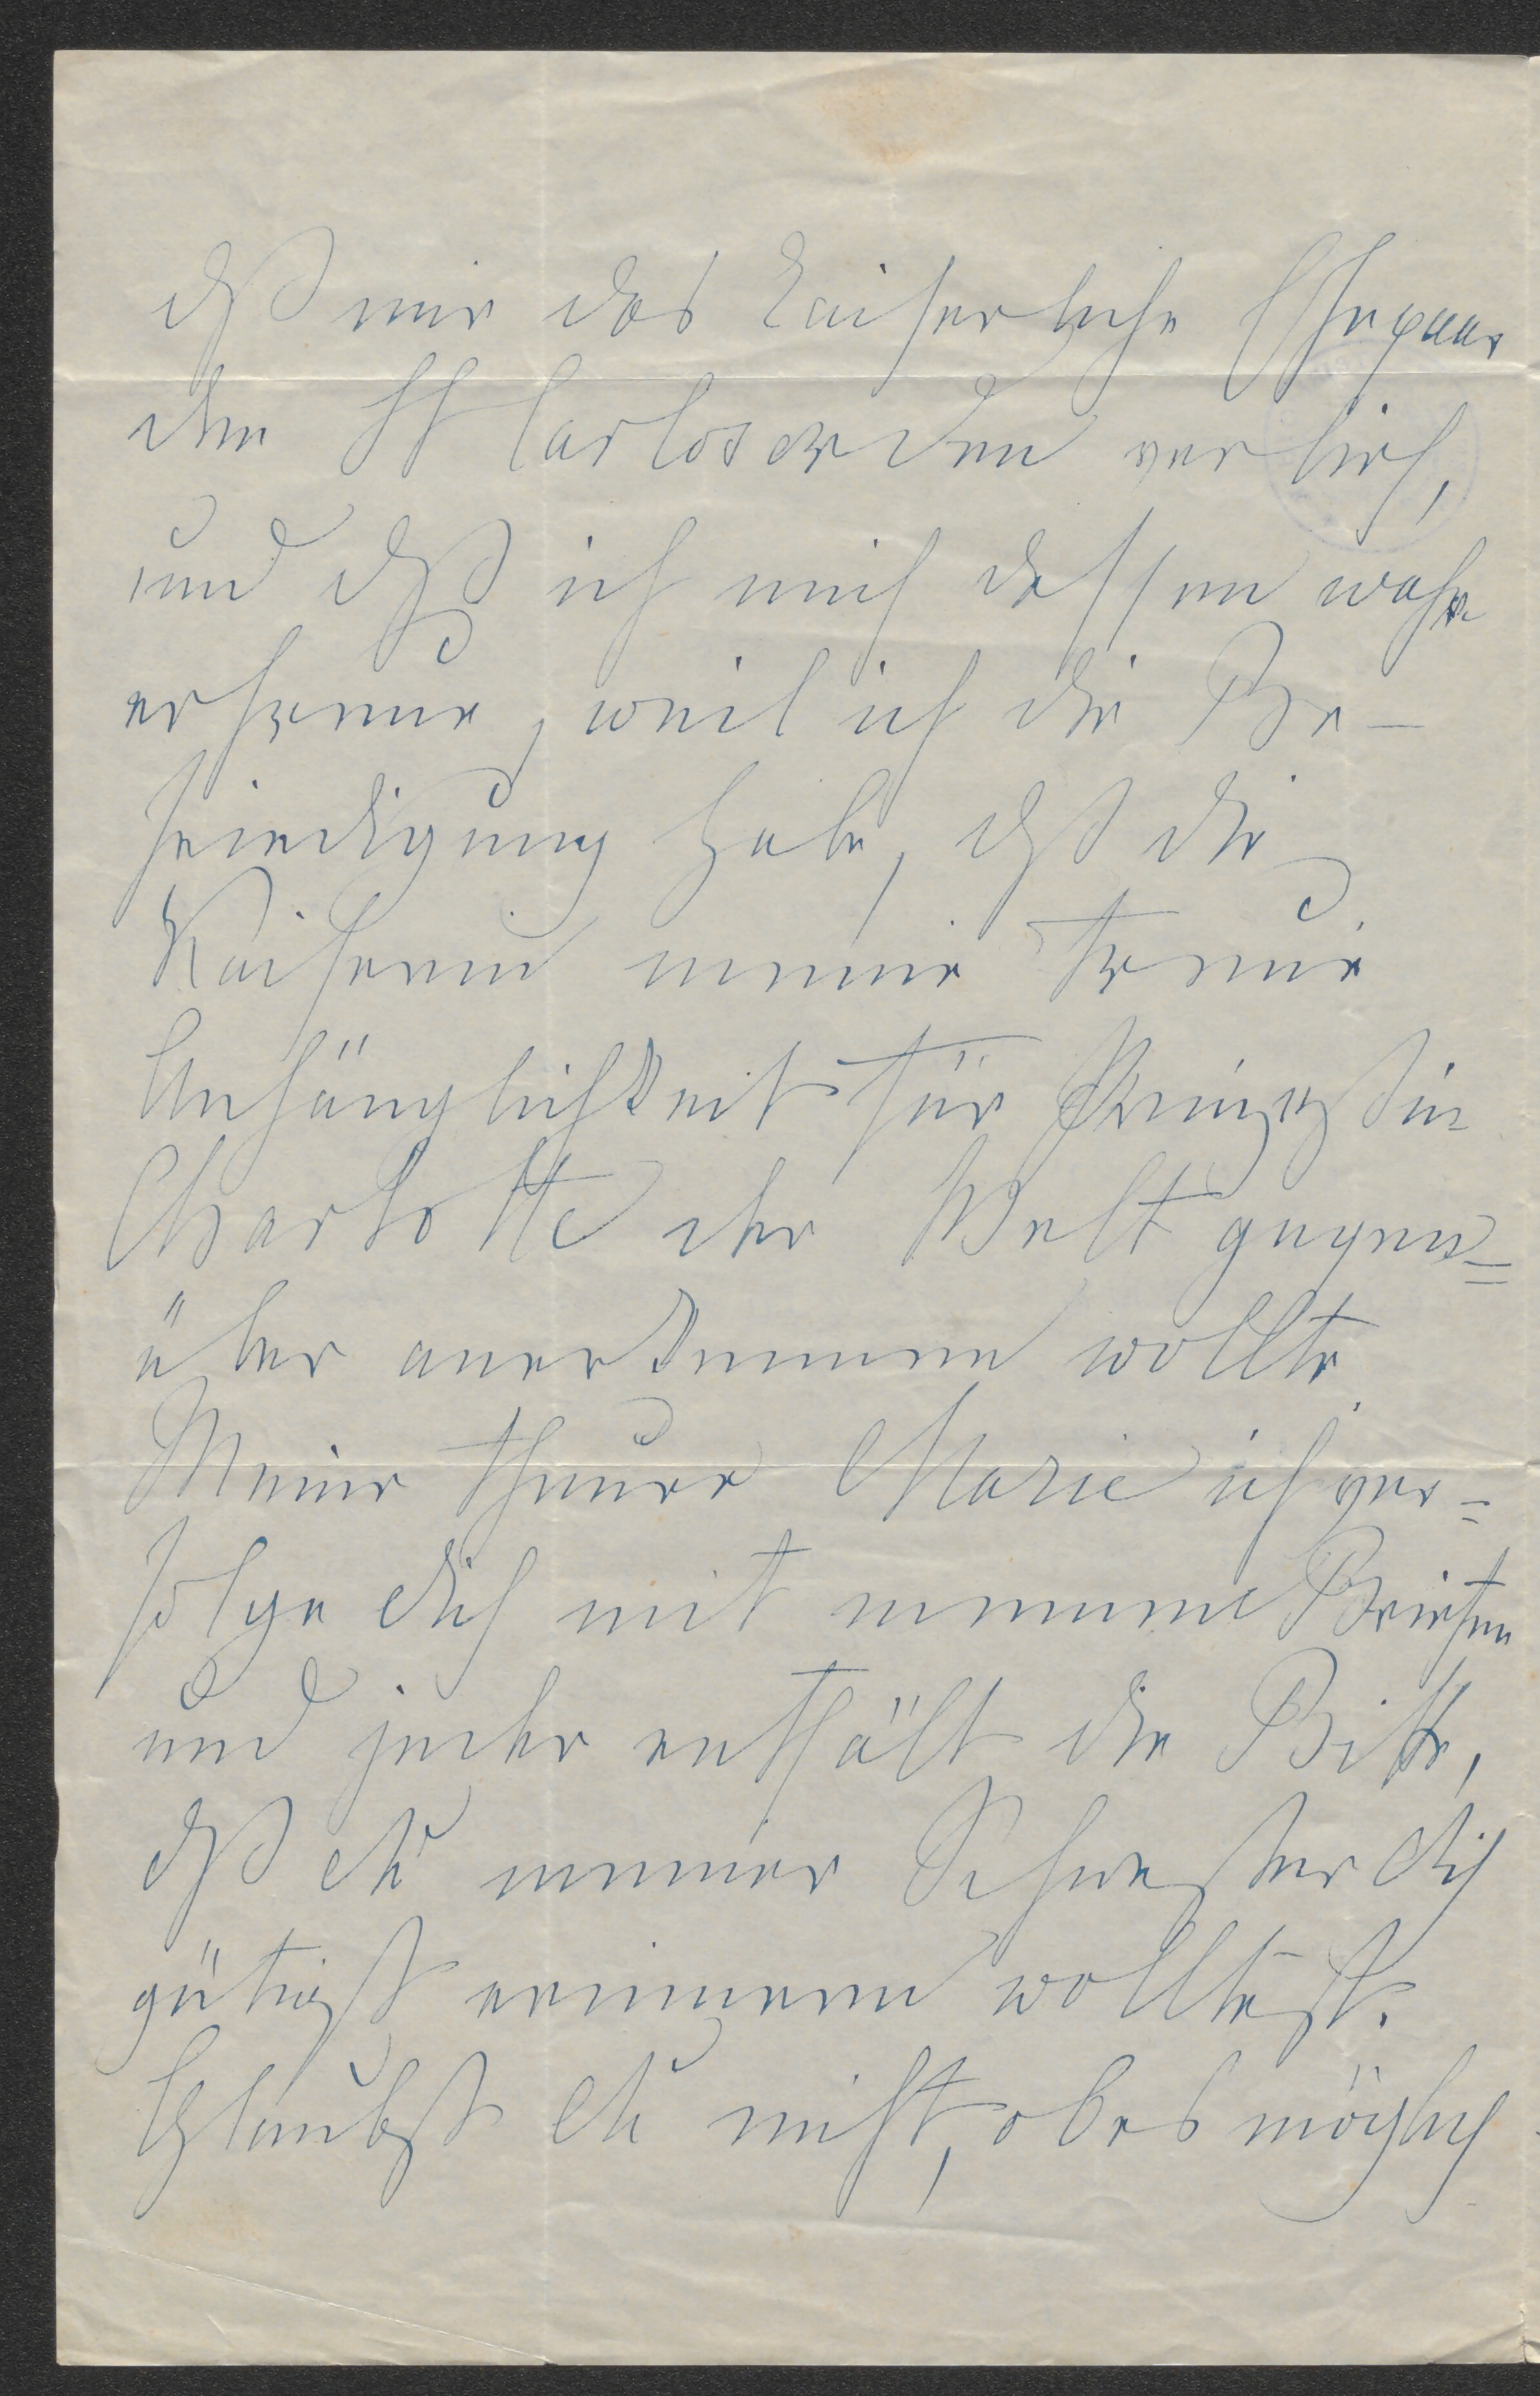 dß mir das kaiserliche Ehepaar
den St Carlosorden verlieh,
und dß ich mich dessen wahr
erfreue, weil ich die Be-
friedigung habe, dß die
Kaiserin meine treue
Anhänglichkeit für Prinzessin
Charlotte der Welt gegen=
über anerkennen wollte
Meine theure Marie ich ver=
folge Dich mit meinen Briefen
und jeder enthält die Bitte,
dß Du meiner Schwester Dich
gütigst erinnern wolltest.
Glaubst Du nicht, ob es möglich